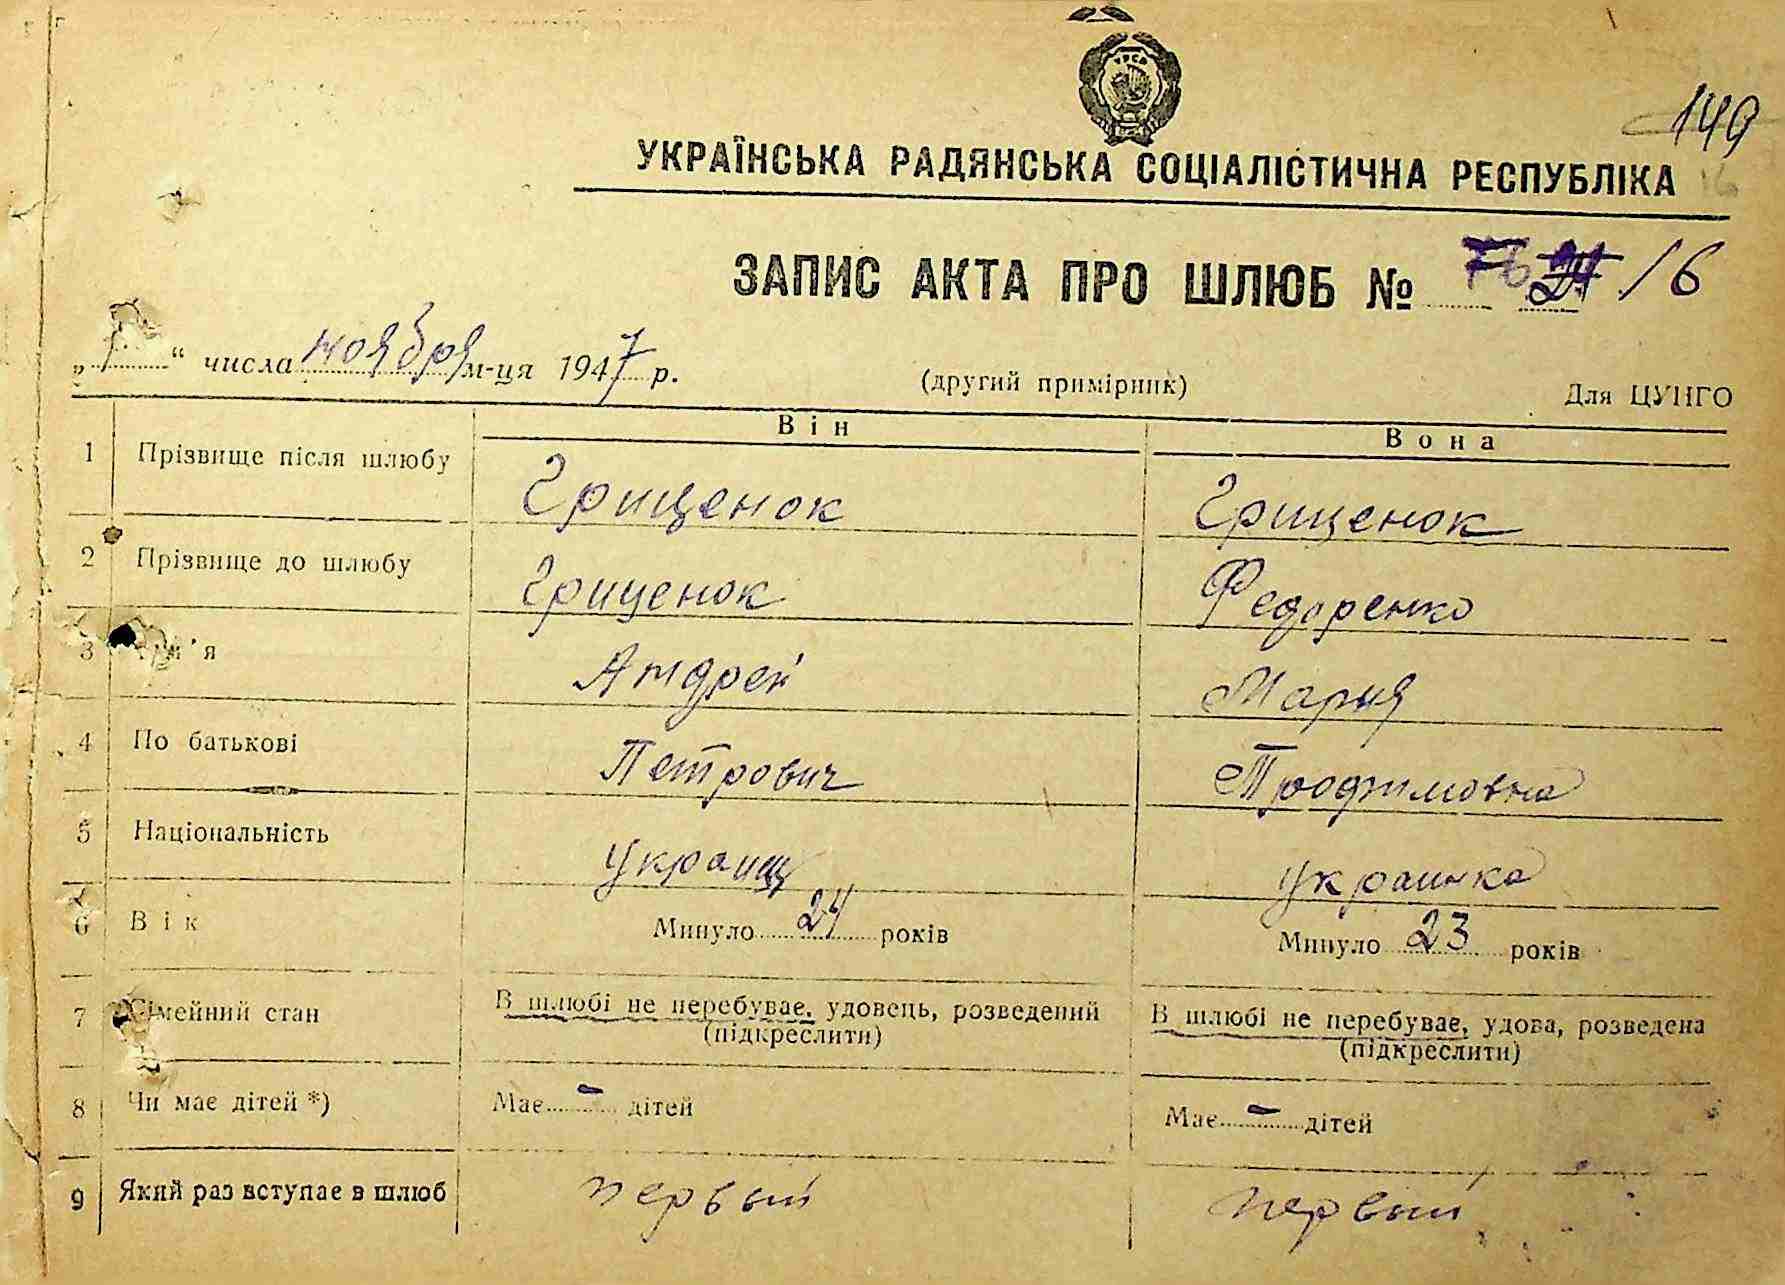 УРСР
149
УКРАЇНСЬКА РАДЯНСЬКА СОЦІАЛІСТИЧНА РЕСПУБЛІКА
ЗАПИС АКТА ПРО ШЛЮБ № 16
„1“ числа ноября м-ця 1947 р. (другий примірник) Для ЦУНГО
Він Вона
1 Прізвище після шлюбу Гриценок Гриценок
2 Прізвище до шлюбу Гриценок Федоренко
3 Ім'я Андрей Мария
4 По батькові Петрович Трофимовна
5 Національність украинц украинка
6 Вік Минуло 24 років Минуло 23 років
7 Сімейний стан В шлюбі не перебуває, удовець, розведений (підкреслити) В шлюбі не перебуває, удова, розведена (підкреслити)
8 Чи має дітей *) Має – дітей Має – дітей
9 Який раз вступає в шлюб первый первый